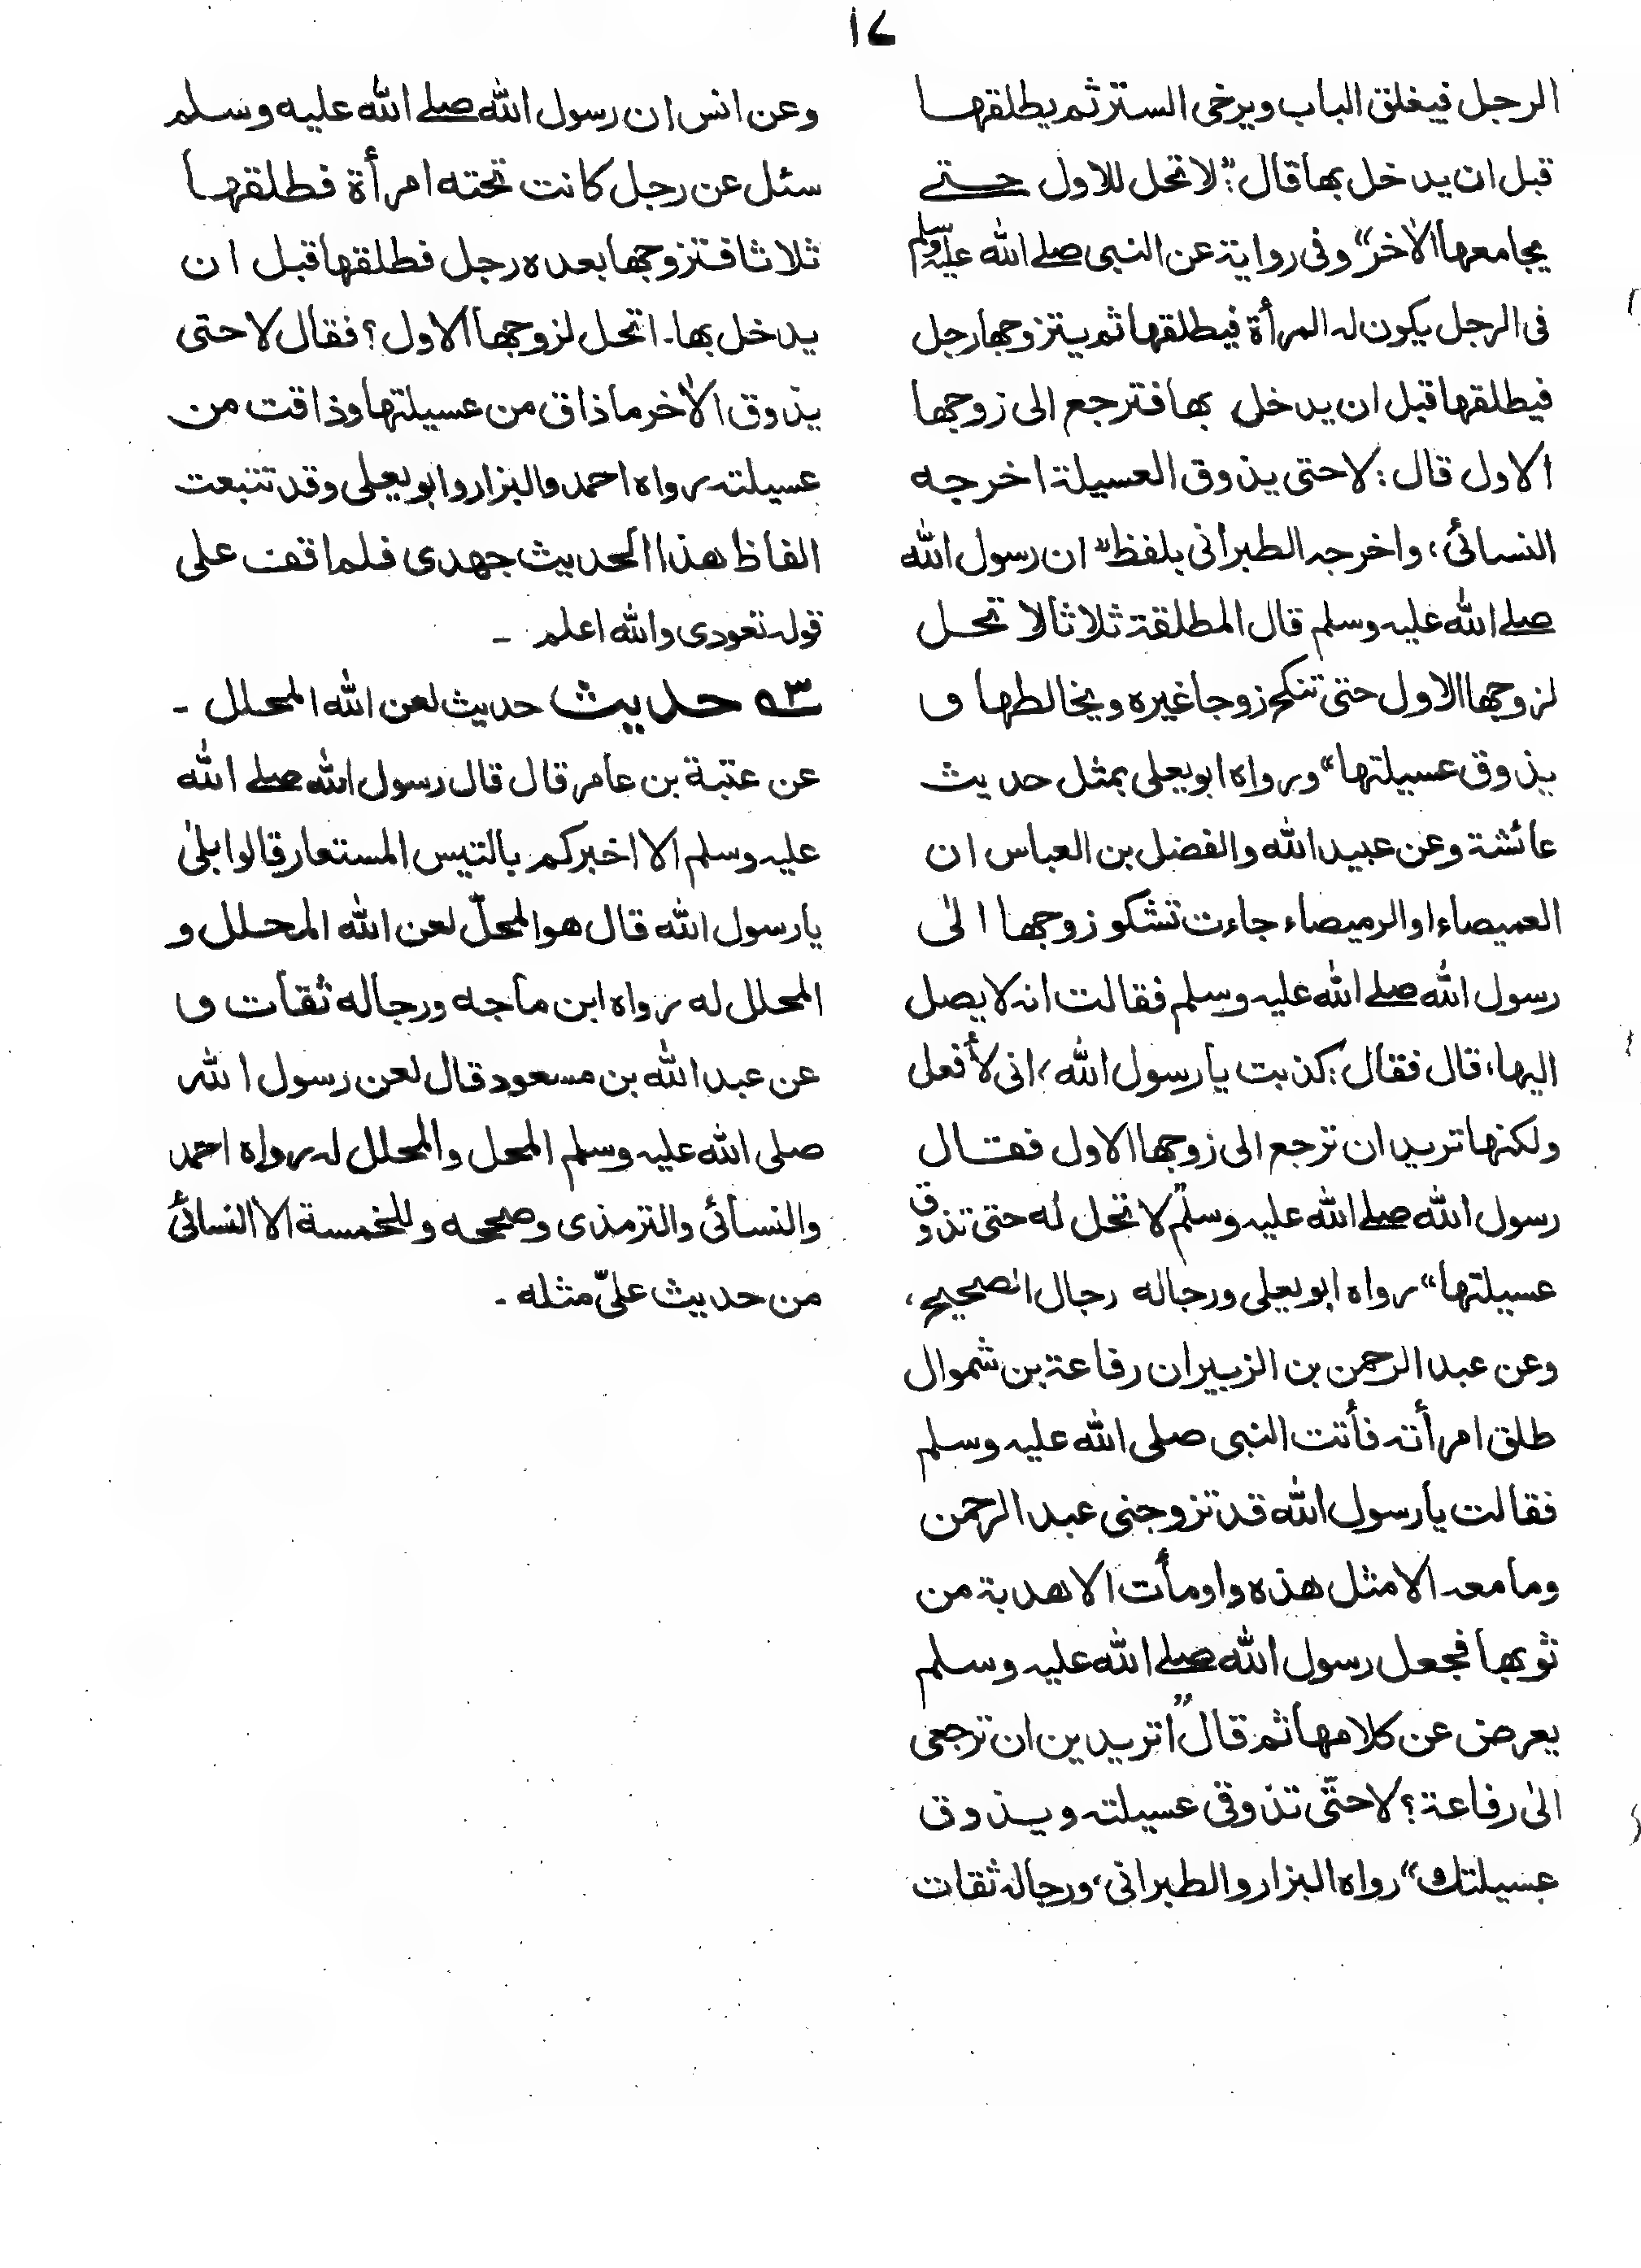 ۱۷
الرجل فيغلق الباب ويرخى الستر ثم يطلقها
قبل ان يدخل بها قال: "لا تحل للاول حتى
يجامعها الاٰخر" وفى رواية عن النبى صلے اللّٰه عليہ وسلم
فى الرجل يكون لہ المرأة فيطلقها ثم يتزوجها رجل
فيطلقها قبل ان يدخل بها فترجع الى زوجها
الاول قال: لا حتى يذوق العسيلة اخرجه
النسائى، واخرجہ الطبرانى بلفظ "ان رسول اللّٰه
صلے اللّٰه عليہ وسلم قال المطلقة ثلاثا لا تحل
لزوجها الاول حتى تنكح زوجا غيره ويخالطها و
يذوق عسيلتها" ورواه ابويعلى بمثل حديث
عائشة وعن عبيد اللّٰه والفضل بن العباس ان
العميصاء او الرميصاء جاءت تشكو زوجها الىٰ
رسول اللّٰه صلے اللّٰه عليہ وسلم فقالت انہ لا يصل
اليها، قال فقال: كذبت يا رسول اللّٰه، انى لأفعل
ولكنها تريد ان ترجع الى زوجها الاول فقال
رسول اللّٰه صلے اللّٰه عليہ وسلم "لا تحل له حتى تذوق
عسيلتها" رواه ابويعلى ورجاله رجال الصحيح،
وعن عبد الرحمن بن الزبير ان رفاعة بن شموال
طلق امرأتہ فأتت النبى صلى اللّٰه عليہ وسلم
فقالت يا رسول اللّٰه قد تزوجنى عبد الرحمن
وما معہ الا مثل هذه واومأت الا هدبة من
ثوبها فجعل رسول اللّٰه صلے اللّٰه عليہ وسلم
يعرض عن كلامها ثم قال "اتريدين ان ترجعى
الىٰ رفاعة؟ لا حتّى تذوقى عسيلتہ ويذوق
عسيلتك" رواه البزار والطبرانى، ورجالہ ثقات
وعن انس ان رسول اللّٰه صلے اللّٰه عليه وسلم
سئل عن رجل كانت تحته امرأة فطلقها
ثلاثا فتزوجها بعده رجل فطلقها قبل ان
يدخل بها۔ اتحل لزوجها الاول؟ فقال لا حتى
يذوق الاٰخر ما ذاق من عسيلتها وذاقت من
عسيلتہ رواه احمد والبزار وابو يعلى وقد تتبعت
الفاظ هذا الحديث جهدى فلم اقف على
قولہ تعودى واللّٰه اعلم ۔
۵۳ حديث حديث لعن اللّٰه المحلل ۔
عن عتبة بن عامر قال قال رسول اللّٰه صلے اللّٰه
عليہ وسلم الا اخبركم بالتيس المستعار قالوا بلىٰ
يا رسول اللّٰه قال هو المحلّ لعن اللّٰه المحلل و
المحلل له رواه ابن ماجه ورجاله ثقات و
عن عبد اللّٰه بن مسعود قال لعن رسول اللّٰه
صلى اللّٰه عليہ وسلم المحل والمحلل لہ رواه احمد
والنسائى والترمذى وصححه وللخمسة الا النسائىُ
من حديث علىّ مثله ۔